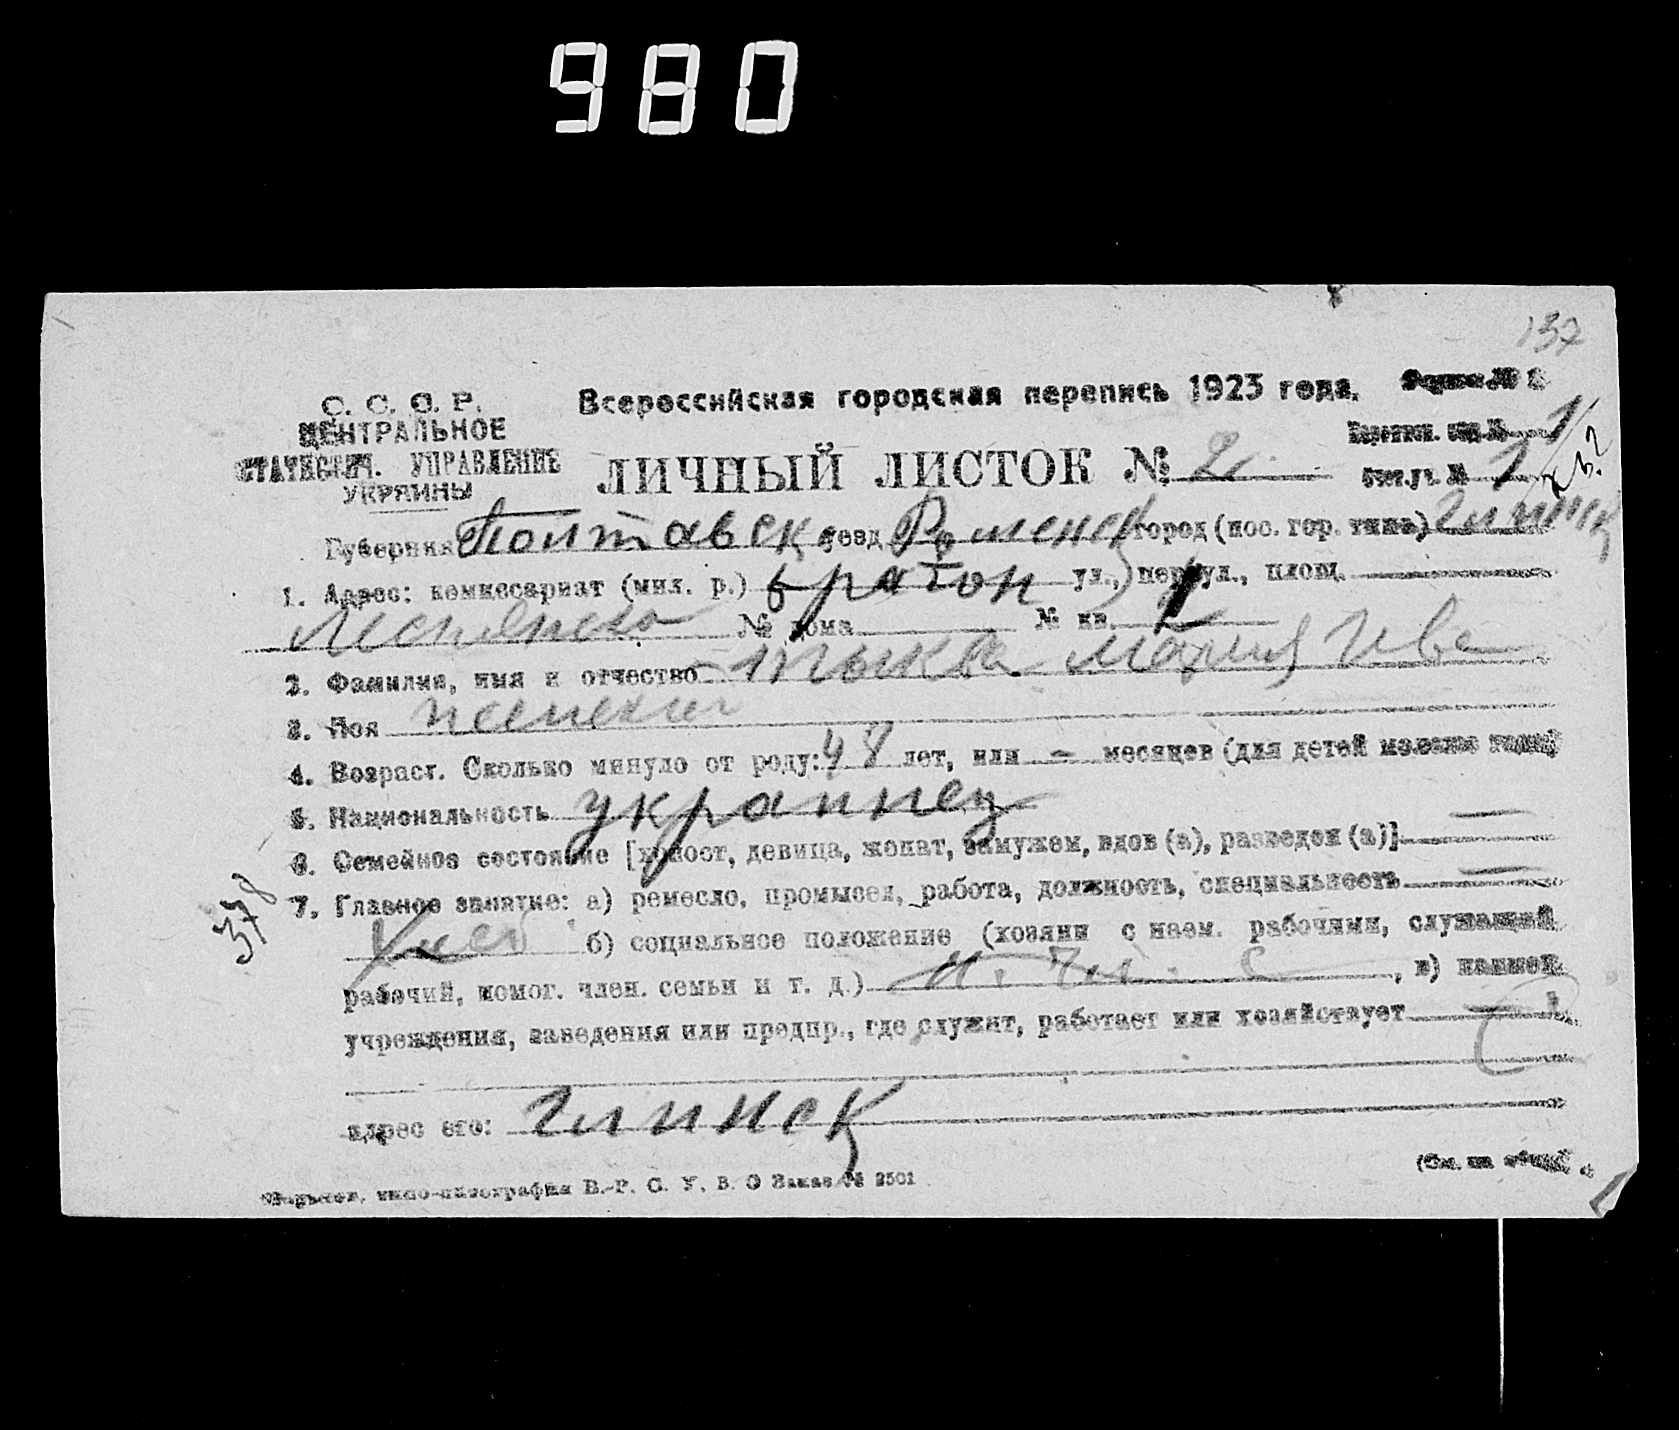 980
137
С. С. С. Р.
ЦЕНТРАЛЬНОЕ
СТАТИСТИЧ. УПРАВЛЕНИЕ
УКРАИНЫ
Всероссийская городская перепись 1923 года.
ЛИЧНЫЙ ЛИСТОК № 2
1
1
Губерния Полтавск уезд Роменск город (пос. гор. типа) Глинск
1. Адрес: комиссариат (мил. р.) район ул., пер ул., площ.
№ дома № кв.
2. Фамилия, имя и отчество Мария Ива
3. Пол женский
4. Возраст. Сколько минуло от роду: 48 лет, или — месяцев (для детей моложе года)
5. Национальность украинец
6. Семейное состояние [холост, девица, женат, замужем, вдов (а), разведен (а)] —
378
7. Главное занятие: а) ремесло, промысел, работа, должность, специальность —
б) социальное положение (хозяин с наем. рабочими, служащий
рабочий, помог. член. семьи и т. д.) , в) наимен.
учреждения, заведения или предпр., где служит, работает или хозяйствует —
адрес его: Глинск
типо-литография В.-Р. С. У. В. О Заказ № 2501
(См. на